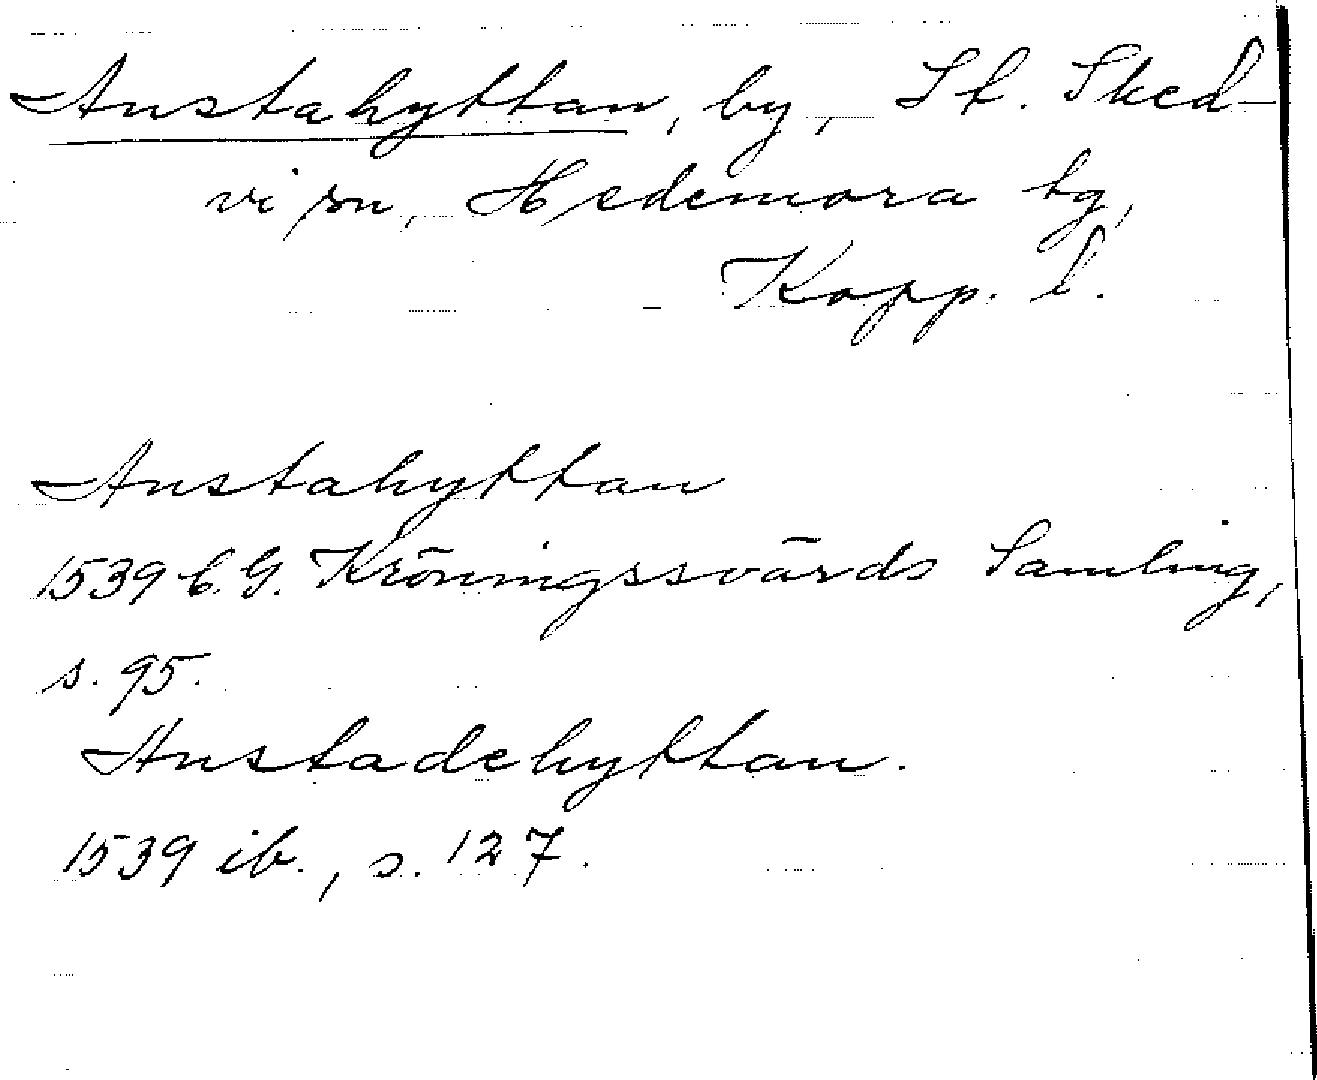 Anstahyttan, by, St. Sked-
vi sn, Hedemora bg,
Kopp. l.
Anstahyttan
1539 C. G. Kröningssvärds Samling,
s. 95.
Anstadehyttan.
1539 ib., s. 127.